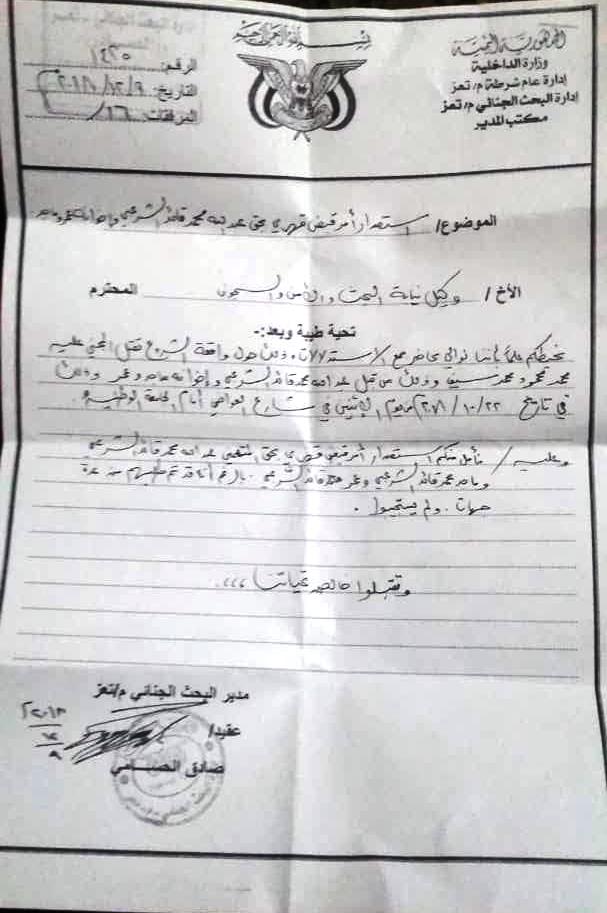 الجمهورية اليمنية
وزارة الداخلية
إدارة عام شرطة م/ تعز
إدارة البحث الجنائي م/ تعز
مكتب المدير
بسم الله الرحمن الرحيم
إدارة البحث الجنائي - تعز
الرقم: ١٤٣٥
التاريخ: ٢٠١٨/١٢/٩
المرفقات: /١٦
الموضوع/ استصدار أمر قبض قهري بحق عبدالله محمد قائد الشرعبي وإخوانه عمر وماجد
الأخ / وكيل نيابة البحث والأمن والسجون المحترم
تحية طيبة وبعد:-
نحيطكم علماً بأننا نوالي محاضر جمع الاستدلالات وذلك حول واقعة الشروع بقتل المجني عليه
محمد محمود محمد سيف وذلك من قبل عبدالله محمد قائد الشرعبي وإخوانه ماجد وعمر وذلك
في تاريخ ٢٢/١٠/٢٠١٨ يوم الإثنين في شارع العواضي أمام الجامعة الوطنية.
وعليه / نأمل منكم استصدار أمر قبض قهري بحق المتهمين عبدالله محمد قائد الشرعبي
وماجد محمد قائد الشرعبي وعمر محمد قائد الشرعبي. بالرغم أنه قد تم طلبهم من عدة
جهات. ولم يستجيبوا.
وتقبلوا خالص تحياتنا ،،،
مدير البحث الجنائي م/تعز
عقيد/
صادق الحسامي
٢٠١٨
١٢
٩